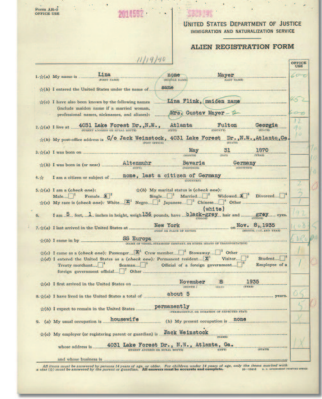 Form AR-2
OFFICE USE
UNITED STATES DEPARTMENT OF JUSTICE
IMMIGRATION AND NATURALIZATION SERVICE
ALIEN REGISTRATION FORM
OFFICE USE
1. (a) My name is Line none Mayer
1. (b) I entered the United States under the name of same
1. (c) I have also been known by the following names Line Flink, maiden name
(include maiden name if a married woman,
professional names, nicknames, and aliases): Mrs. Gustav Mayer
2. (a) I live at 4031 Lake Forest Dr., N.W., Atlanta Fulton Georgia
2. (b) My post-office address is C/o Jack Weinstock, 4031 Lake Forest Dr., N.W., Atlanta, Ga.
3. (a) I was born on May 31 1870
3. (b) I was born in (or near) Altenmuhr Bavaria Germany
4. I am a citizen or subject of none, last a citizen of Germany
5. (a) I am a (check one):
Male Female
5. (b) My marital status is (check one):
Single Married Widowed Divorced
5. (c) My race is (check one): White Negro Japanese Chinese Other
(white)
6. I am 5 feet, 1 inches in height, weigh 136 pounds, have black-gray hair and gray eyes
7. (a) I last arrived in the United States at New York on Nov. 8, 1938
7. (b) I came in by SS Europa
7. (c) I came as a (check one): Passenger Crew member Stowaway Other
7. (d) I entered the United States as a (check one): Permanent resident Visitor Student
Treaty merchant Seaman Official of a foreign government Employee of a
foreign government official Other
7. (e) I first arrived in the United States on November 8 1938
8. (a) I have lived in the United States a total of about 2 years
8. (b) I expect to remain in the United States permanently
9. (a) My usual occupation is housewife 9. (b) My present occupation is none
9. (c) My employer (or registering parent or guardian) is Jack Weinstock
whose address is 4031 Lake Forest Dr., N.W., Atlanta, Ga.
and whose business is